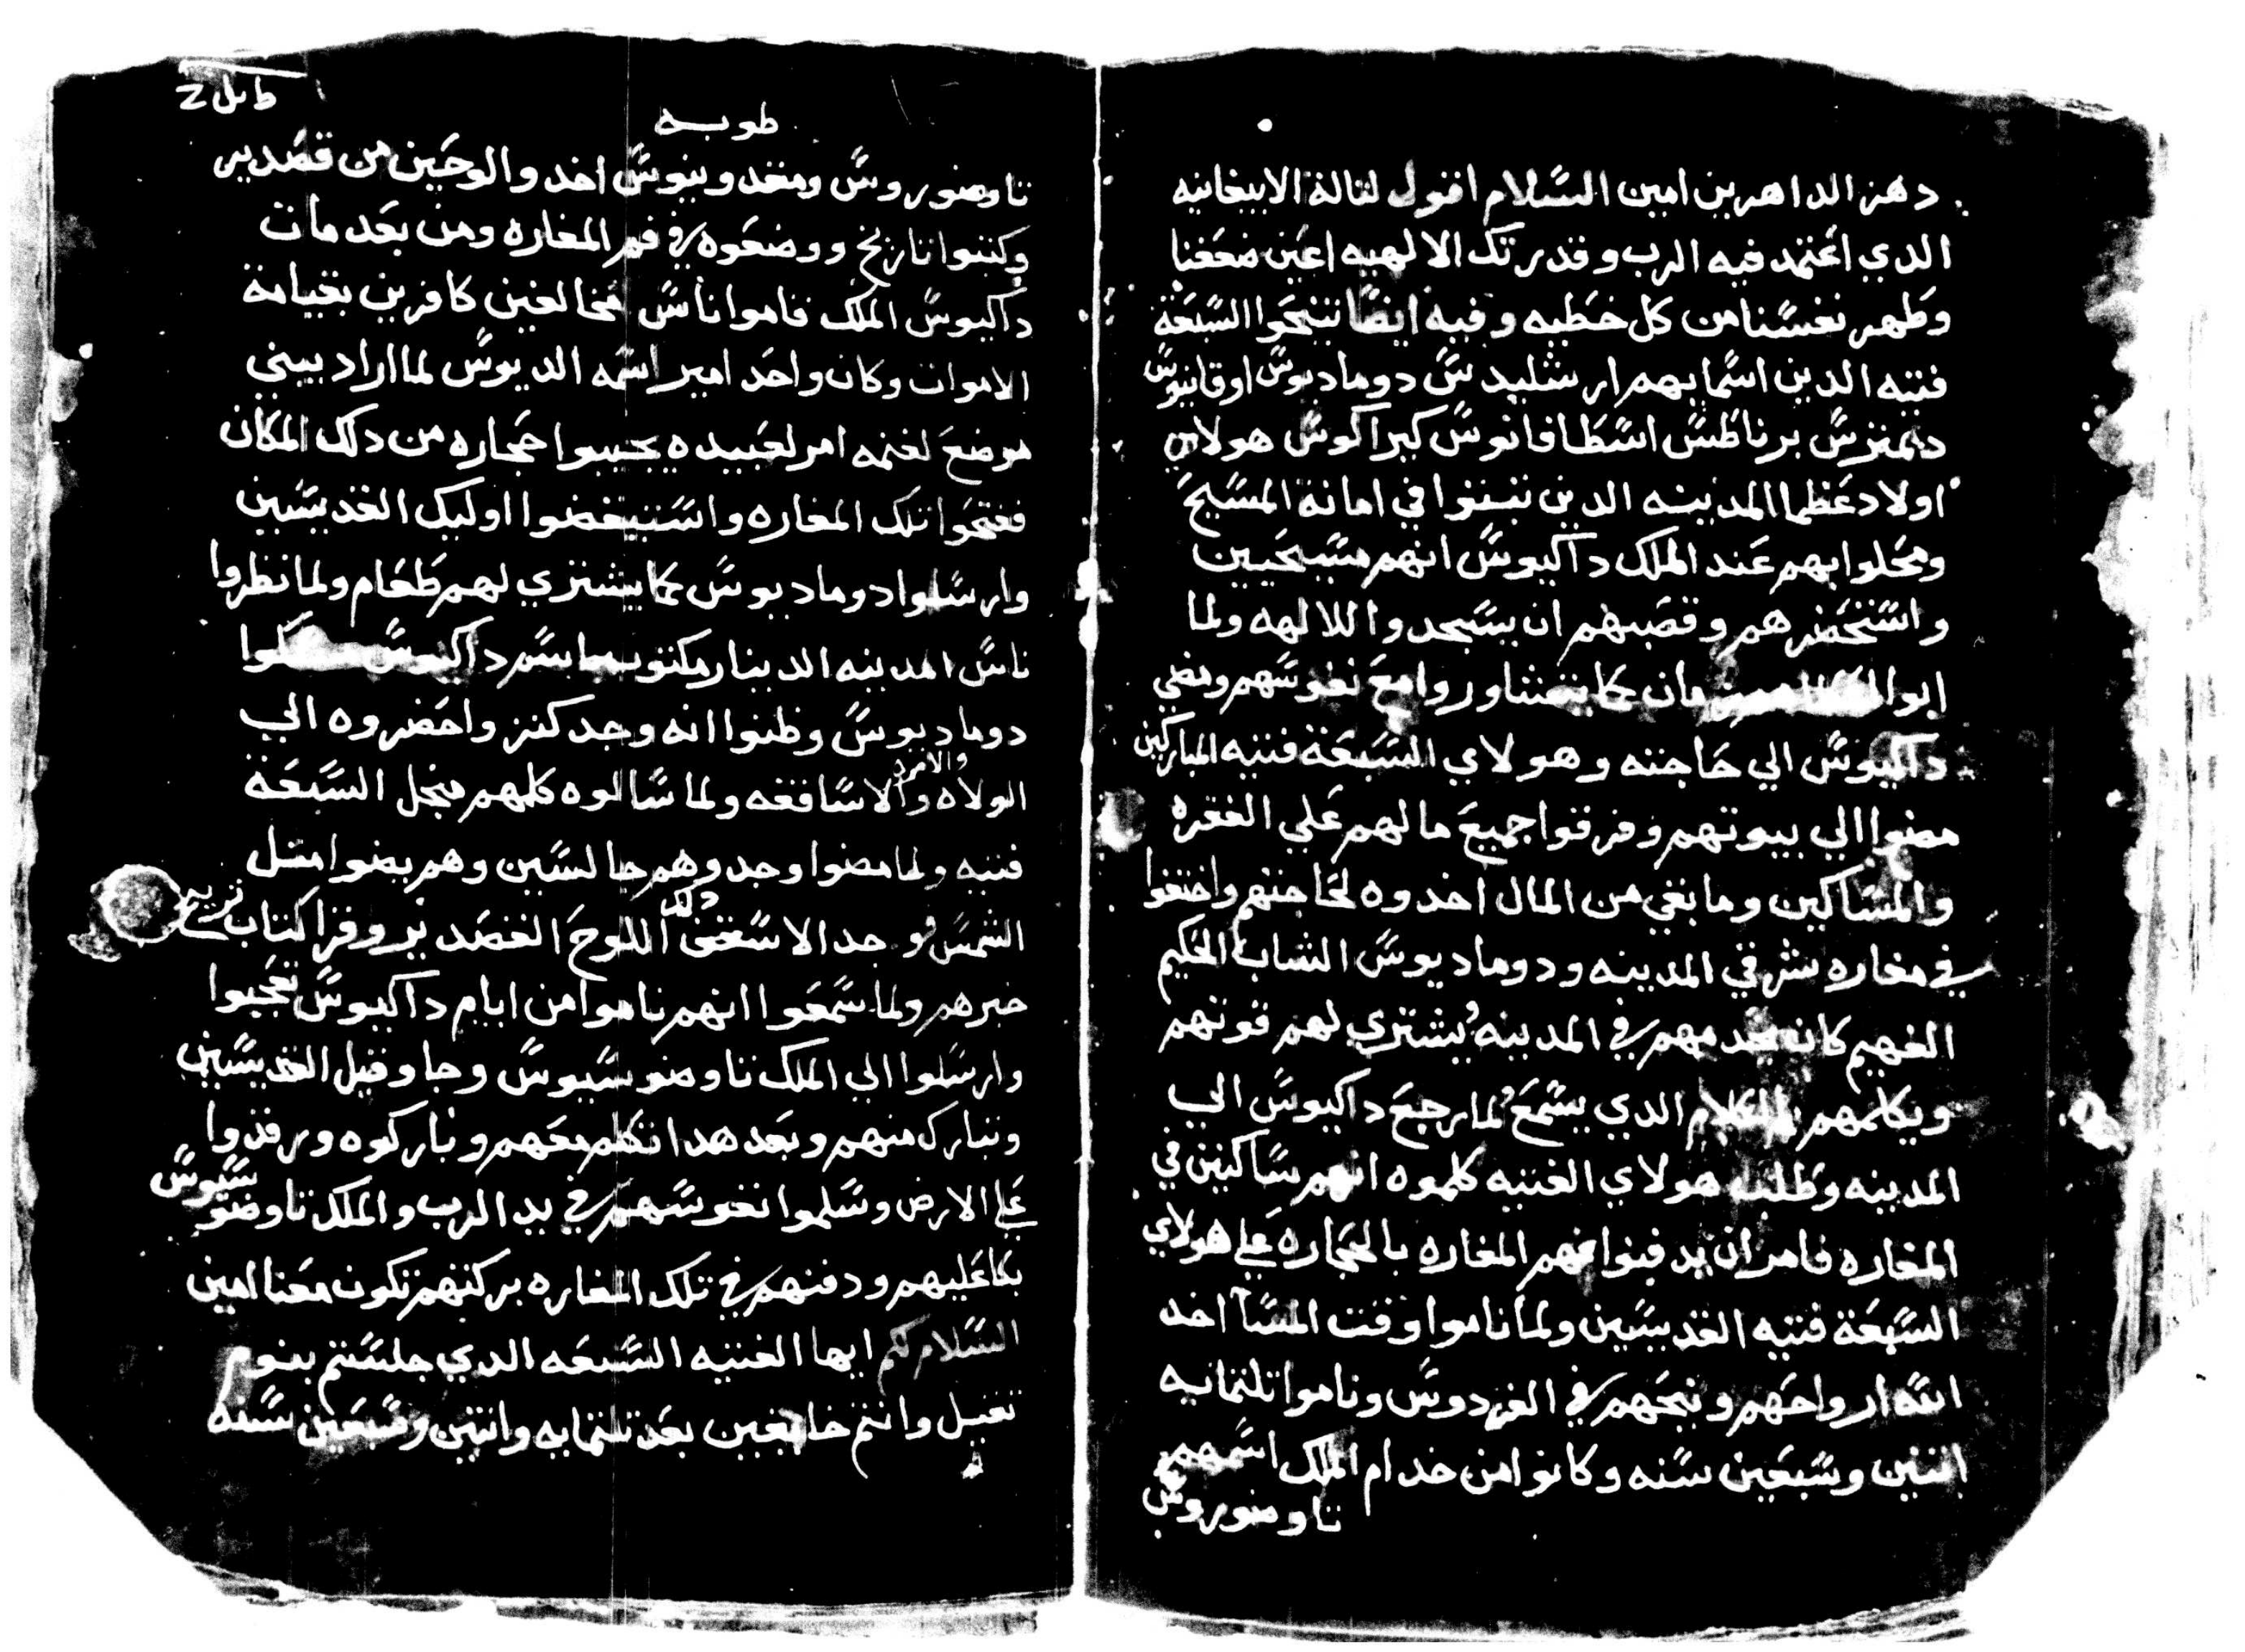 دهر الداهرين امين السلام اقول لتالة الابيغانيه
الدي اعتمد فيه الرب وقدرتك الالهيه اعين ضعفنا
وطهر نفسنا من كل خطيه وفيه ايضا تنيحوا السبعة
فتيه الدين اسمايهم ارشليدس دوماديوس اوقانيوس
ديمترس برناطس اسطافانوس كيراكوس هولاي
اولاد عظما المدينه الدين تبتوا في امانة المسيح
ومحلوا بهم عند الملك داكيوس انهم مسيحيين
واستحضرهم وقصبهم ان يسجدوا للالهه ولما
ابوا زمان كما يتشاوروا مع نفوسهم ومضي
داكيوس الي حاجته وهولاي السبعة فتيه المباركين
مضوا الي بيوتهم وفرقوا جميع مالهم علي الفقره
والمساكين وما بقي من المال اخدوه لحاجتهم واختفوا
في مغاره شرقي المدينه ودوماديوس الشاب الحكيم
الفهيم كان يخدمهم في المدينه يشتري لهم قوتهم
ويكلمهم بالكلام الدي يسمع لما رجع داكيوس الي
المدينه وطلب هولاي الفتيه كلموه انهم ساكنين في
المغاره فامر ان يدفنوا فم المغاره بالحجاره علي هولاي
السبعة فتيه القديسين ولما ناموا وقت المسا اخد
الله ارواحهم ونيحهم في الفردوس وناموا تلتمايه
اتنين وسبعين سنه وكانوا من خدام الملك اسمهم
تاوضوروس
طوبه
تاوضوروس ومنفدوينوس اخد والوحين من قصدير
وكتبوا تاريخ ووضعوه في فم المغاره ومن بعد مات
داكيوس الملك قاموا ناس مخالفين كافرين بقيامة
الاموات وكان واحد امير اسمه الديوس لما اراد يبني
موضع لغنمه امر لعبيده يجيبوا حجاره من دلك المكان
ففتحوا تلك المغاره واستيقضوا اوليك القديسين
وارسلوا دوماديوس كما يشتري لهم طعام ولما نظروا
ناس المدينه الدينار مكتوب باسم داكيوس مسكوا
دوماديوس وظنوا انه وجد كنز واحضروه الي
الولاه والامرا والاساقفه ولما سالوه كلمهم من جل السبعة
فتيه ولما مضوا وجدوهم جالسين وهم يضوا متل
الشمس فوجد الاسقف دلك اللوح القصدير وقرا كتاب تريح
خبرهم ولما سمعوا انهم ناموا من ايام داكيوس تعجبوا
وارسلوا الي الملك تاوضوسيوس وجا وقبل القديسين
وتبارك منهم وبعد هدا تكلم معهم وباركوه ورقدوا
علي الارض وسلموا نفوسهم في يد الرب والملك تاوضوسيوس
بكا عليهم ودفنهم في تلك المغاره بركتهم تكون معنا امين
السلام لكم ايها الفتيه السبعه الدي جلستم بنوم
تقيل وانتم خايفين بعد تلتمايه واتنين وسبعين سنه